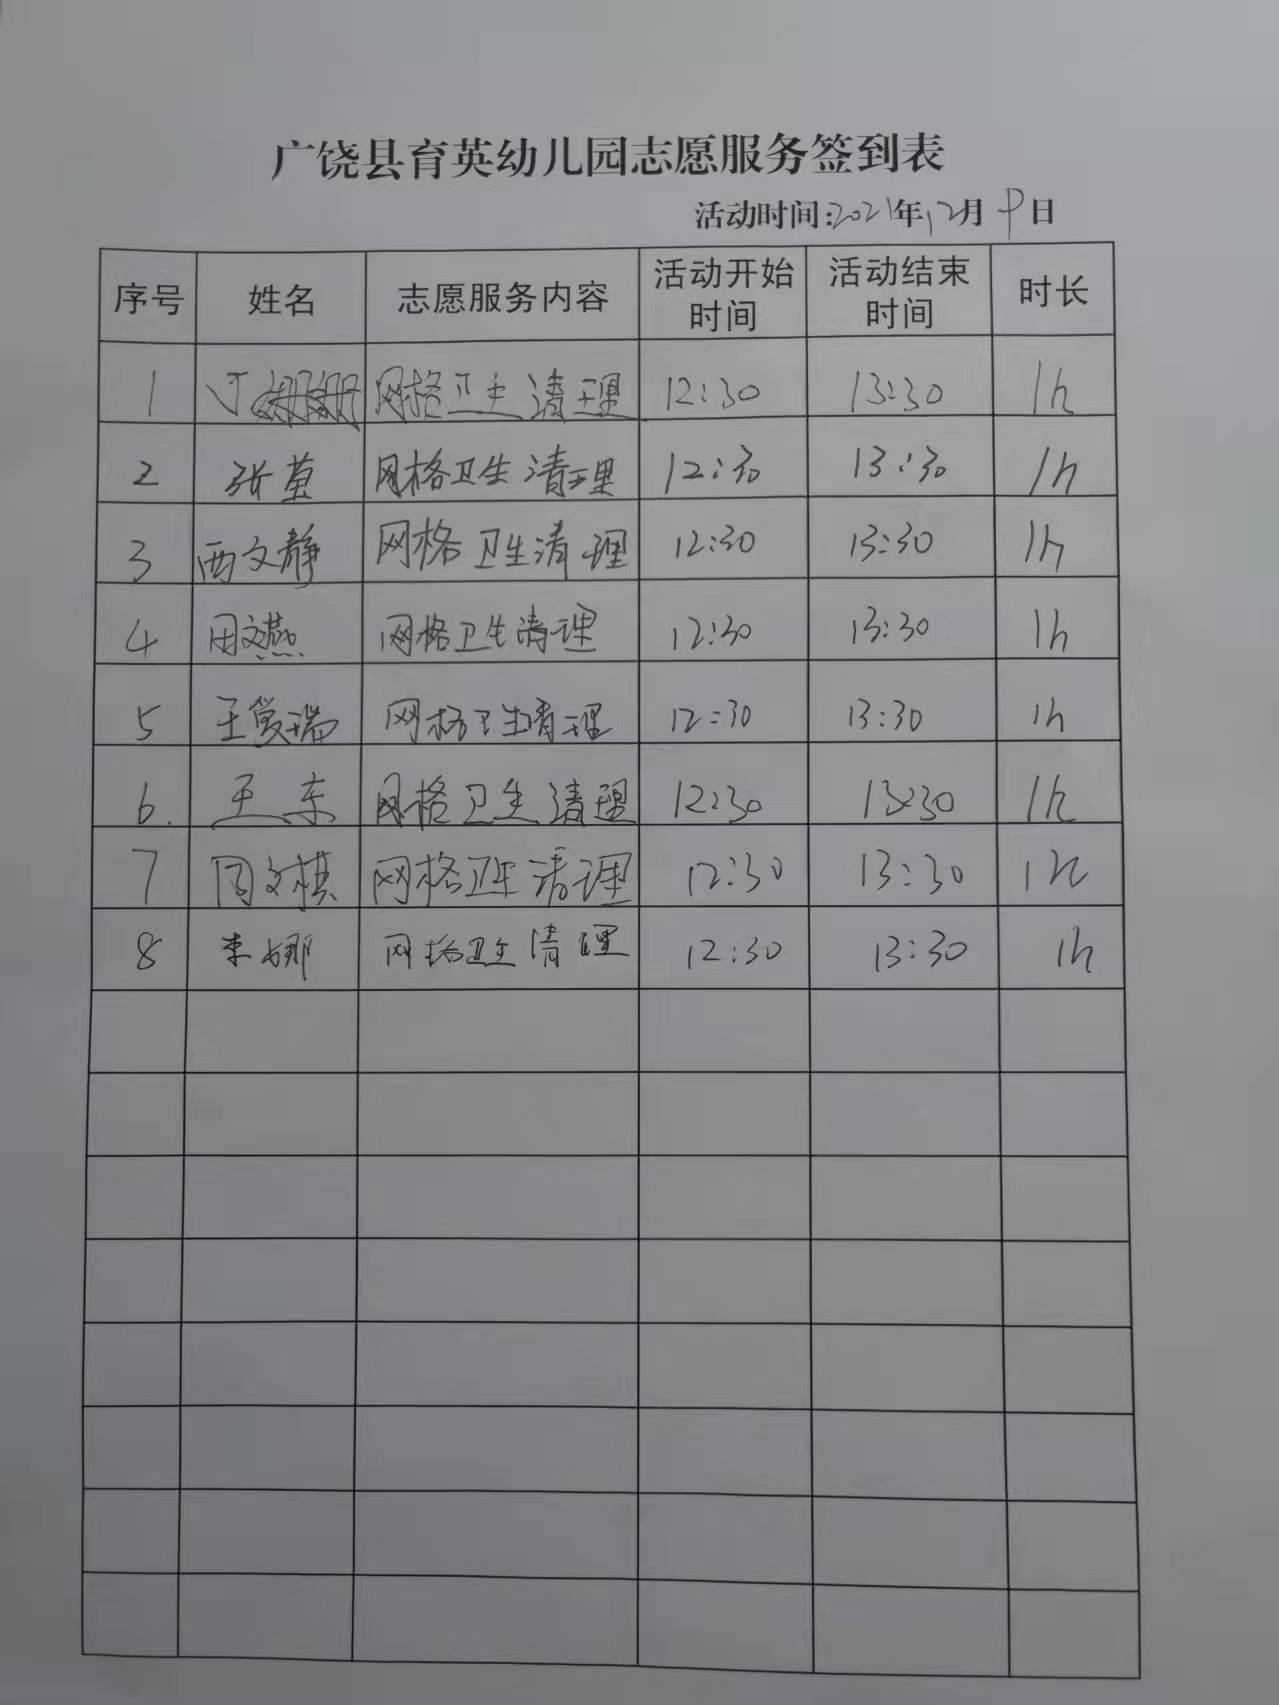 广饶县育英幼儿园志愿服务签到表
活动时间:2021年12月9日
序号 姓名 志愿服务内容 活动开始时间 活动结束时间 时长
1 网格卫生清理 12:30 13:30 1h
2 张萱 网格卫生清理 12:30 13:30 1h
3 西文静 网格卫生清理 12:30 13:30 1h
4 周文燕 网格卫生清理 12:30 13:30 1h
5 网格卫生清理 12:30 13:30 1h
6. 王东 网格卫生清理 12:30 13:30 1h
7 周文棋 网格卫生清理 12:30 13:30 1h
8 李娜 网格卫生清理 12:30 13:30 1h